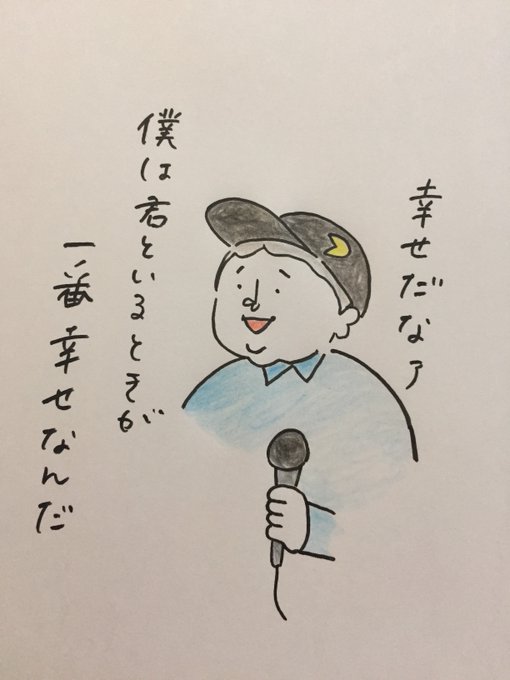 幸せだなァ
僕は君といるときが
一番幸せなんだ